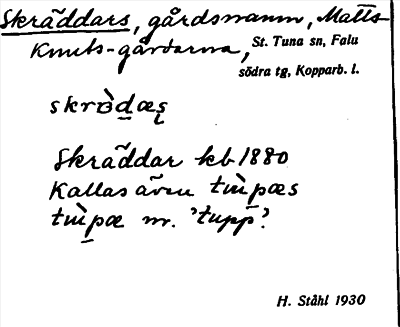 Skräddars, gårdsnamn, Matts-
Knuts-gårdarna, St. Tuna sn, Falu
södra tg, Kopparb. l.
skrò̀dæs̨
Skräddar kb 1880
Kallas även
mr. 'tupp'.
H. Ståhl 1930